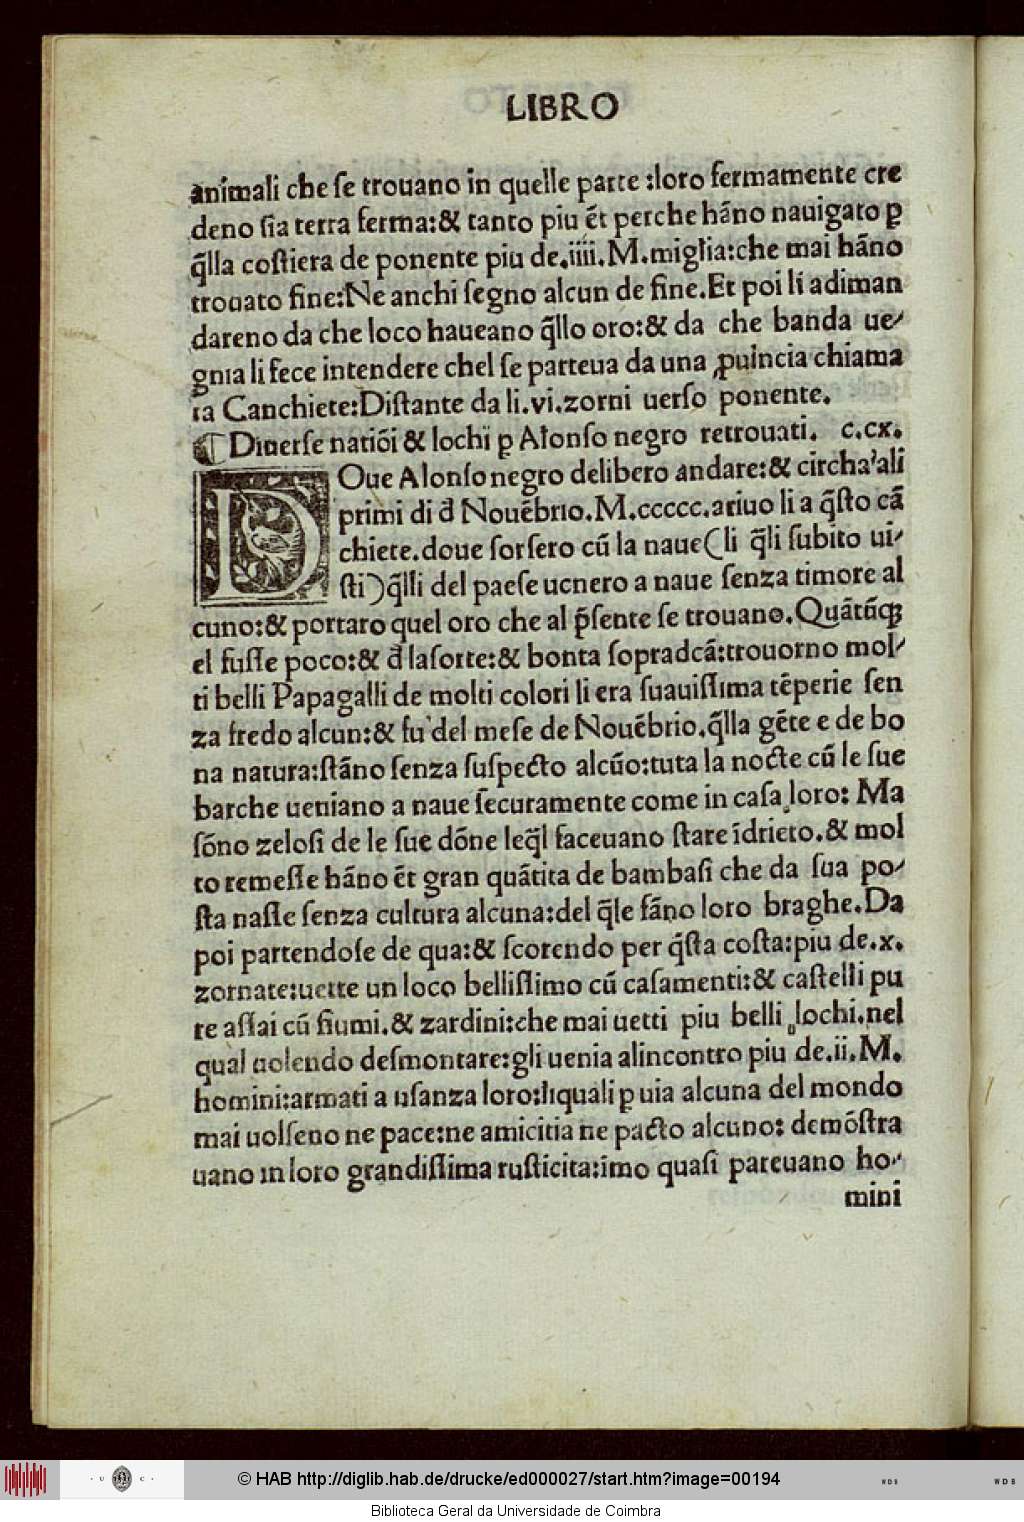 LIBRO
animali che ſe trouano in quelle parte :loro fermamente cre
deno ſia terra ferma:& tanto piu ēt perche hāno nauigato ꝑ
q̄lla coſtiera de ponente piu de.iiii.M.miglia:che mai hāno
trouato fine:Ne anchi ſegno alcun de fine.Et poi li adiman
dareno da che loco haueano q̄llo oro:& da che banda ue⸗
gnia li fece intendere chel ſe parteua da una ꝓuincia chiama
ta Canchiete:Diſtante da li.vi.zorni uerſo ponente.
¶ Diuerſe natiōi & lochi ꝑ Alonſo negro retrouati. c.cx.
DOue Alonſo negro delibero andare:& circha'ali
primi di đ Nouēbrio.M.ccccc.ariuo li a q̄ſto cā
chiete.doue ſorſero cū la naue(li q̄li ſubito ui⸗
ſti)q̄lli del paeſe ucnero a naue ſenza timore al
cuno:& portaro quel oro che al p̄ſente ſe trouano.Quātūqꝫ
el fuſſe poco:& đ laſorte:& bonta ſopradcā:trouorno mol⸗
ti belli Papagalli de molti colori li era ſuauiſſima tēperie ſen
za fredo alcun:& fu del meſe de Nouēbrio.q̄lla gēte e de bo
na natura:ſtāno ſenza ſuſpecto alcūo:tuta la nocte cū le ſue
barche ueniano a naue ſecuramente come in caſa loro: Ma
ſōno zeloſi de le ſue dōne leq̄l faceuano ſtare īdrieto.& mol
to remeſſe hāno ēt gran quātita de bambaſi che da ſua po⸗
ſta naſſe ſenza cultura alcuna:del q̄le fāno loro braghe.Da
poi partendoſe de qua:& ſcorendo per q̄ſta coſta:piu de.x.
zornate:uette un loco belliſſimo cū caſamenti:& caſtelli pu
re aſſai cū fiumi.& zardini:che mai uetti piu belli lochi.nel
qual uolendo deſmontare:gli uenia alincontro piu de.ii.M.
homini:armati a uſanza loro:liquali ꝑ uia alcuna del mondo
mai uolſeno ne pace:ne amicitia ne pacto alcuno: demōſtra
uano in loro grandiſſima ruſticita:imo quaſi pareuano ho⸗
mini
© HAB http://diglib.hab.de/drucke/ed000027/start.htm?image=00194
U C
WDB
WDB
Biblioteca Geral da Universidade de Coimbra